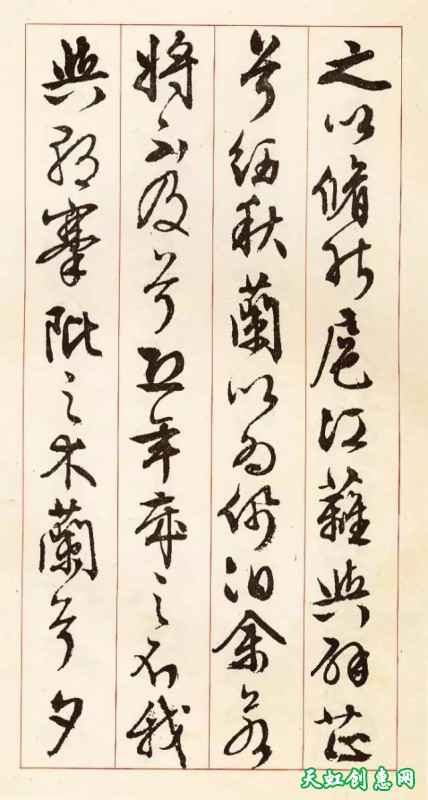 之以脩能扈江蘺與辟芷
兮紉秋蘭以為佩汩余若
將不及兮恐年歲之不我
與朝搴阰之木蘭兮夕
天虹创惠网